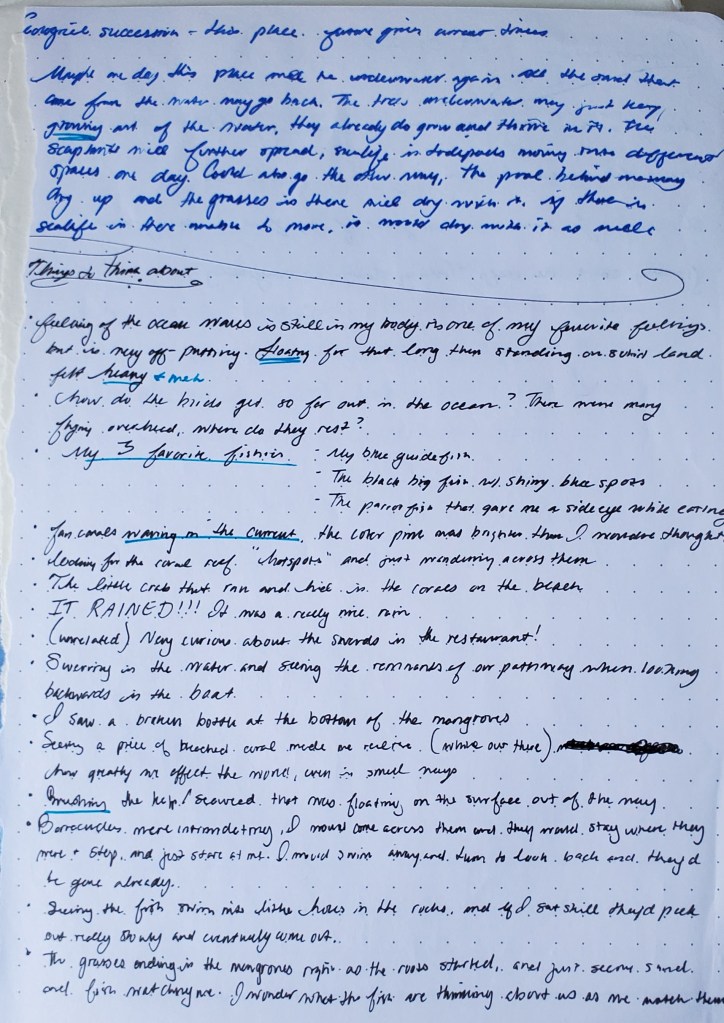 succession - this place. future given current times
Maybe one day this place will be underwater again. All the sand that
came from the water may go back. The trees underwater may just keep
growing out of the water, they already do grow and thrive in it. The
will further spread, sealife in tidepools moving into different
spaces one day. Could also go the other way, the pool behind
dry up and the grasses in there will dry with it. if there is
sealife in there unable to move, it would dry with it as well.
Things to think about
• feeling of the ocean waves is still in my body is one of my favorite feelings
but is very off-putting. floating for that long then standing on solid land
felt heavy + meh.
• how do the birds get so far out in the ocean? There were many
flying overhead, where do they rest?
• My 3 favorite fishies - My blue guide fish
- The black big fish w/ shiny blue spots
- The parrot fish that gave me a side eye while eating
• fan corals waving in the current, the color pink was brighter than I would've thought
• looking for the coral reef "hotspots" and just wandering across them
• The little crab that ran and hid in the corals on the beach
• IT RAINED!!! It was a really nice rain
• (unrelated) Very curious about the swords in the restaurant!
• Swerving in the water and seeing the remnants of our pathway when looking
backwards in the boat.
• I saw a broken bottle at the bottom of the mangroves
• Seeing a piece of bleached coral made me realize (while out there)
how greatly we effect the world, even in small ways
• Brushing the kelp/seaweed that was floating on the surface out of the way
• Barracudas were intimidating, I would come across them and they would stay where they
were + stop, and just stare at me. I would swim away and turn to look back and they'd
be gone already.
• Seeing the fish swim into little holes in the rocks, and if I sat still they'd peek
out really slowly and eventually come out.
• The grasses ending in the mangroves right as the roots started, and just seeing sand
and fish watching me. I wonder what the fish are thinking about us as we watch them